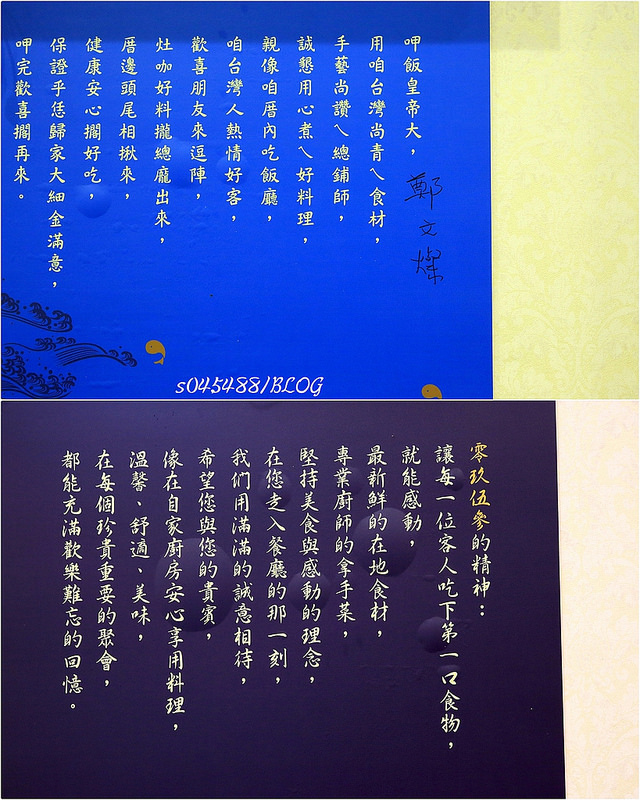 呷飯皇帝大，
用咱台灣尚青ㄟ食材，
手藝尚讚ㄟ總鋪師，
誠懇用心煮ㄟ好料理，
親像咱厝內吃飯廳，
咱台灣人熱情好客，
歡喜朋友來逗陣，
灶咖好料攏總龐出來，
厝邊頭尾相揪來，
健康安心擱好吃，
保證乎恁歸家大細金滿意，
呷完歡喜擱再來。
鄭文燦
s045488/BLOG
零玖伍參的精神：
讓每一位客人吃下第一口食物，
就能感動，
最新鮮的在地食材，
專業廚師的拿手菜，
堅持美食與感動的理念，
在您走入餐廳的那一刻，
我們用滿滿的誠意相待，
希望您與您的貴賓，
像在自家廚房安心享用料理，
溫馨、舒適、美味，
在每個珍貴重要的聚會，
都能充滿歡樂難忘的回憶。